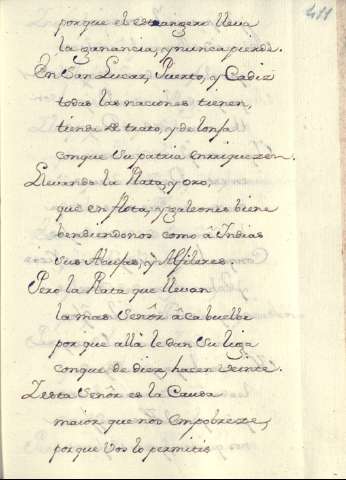 411
porque el estrangero lleva
la ganancia, y nunca pierde.
En San Lucar, Puerto, y Cadiz
todas las naciones tienen,
tienda de trato, y de lonja
conque su patria enriquezen.
Llevando la Plata, y oro,
que en flota, y galeones biene
bendiendonos como â Indias
sus Alujas, y Alfileres.
Pero la Plata que llevan
la mas Señor âca buelbe
por que allâ le dan su liga
conque de diez, hacen veinte.
Y esta Señor es la Causa
maior que nos empobreze,
porque Vos lo permitis